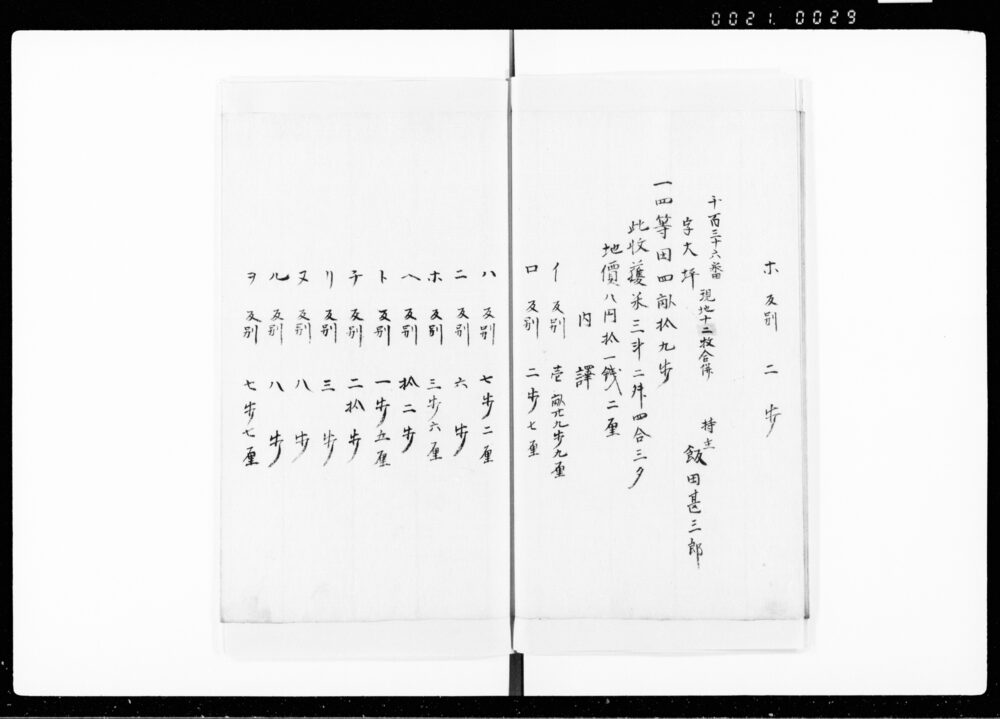 0021. 0029
ホ 反別 二歩
千百三十六番 現地十二枚合併
字大坪 持主 飯田甚三郎
一四等田四畝拾九歩
此收穫米三斗二舛四合三夕
地價八円拾一銭二厘
内譯
イ 反別 壱畝廿九歩九厘
ロ 反別 二歩七厘
ハ 反別 七歩二厘
ニ 反別 六歩
ホ 反別 三歩六厘
ヘ 反別 拾二歩
ト 反別 一歩五厘
チ 反別 二拾歩
リ 反別 三歩
ヌ 反別 八歩
ル 反別 八歩
ヲ 反別 七歩七厘